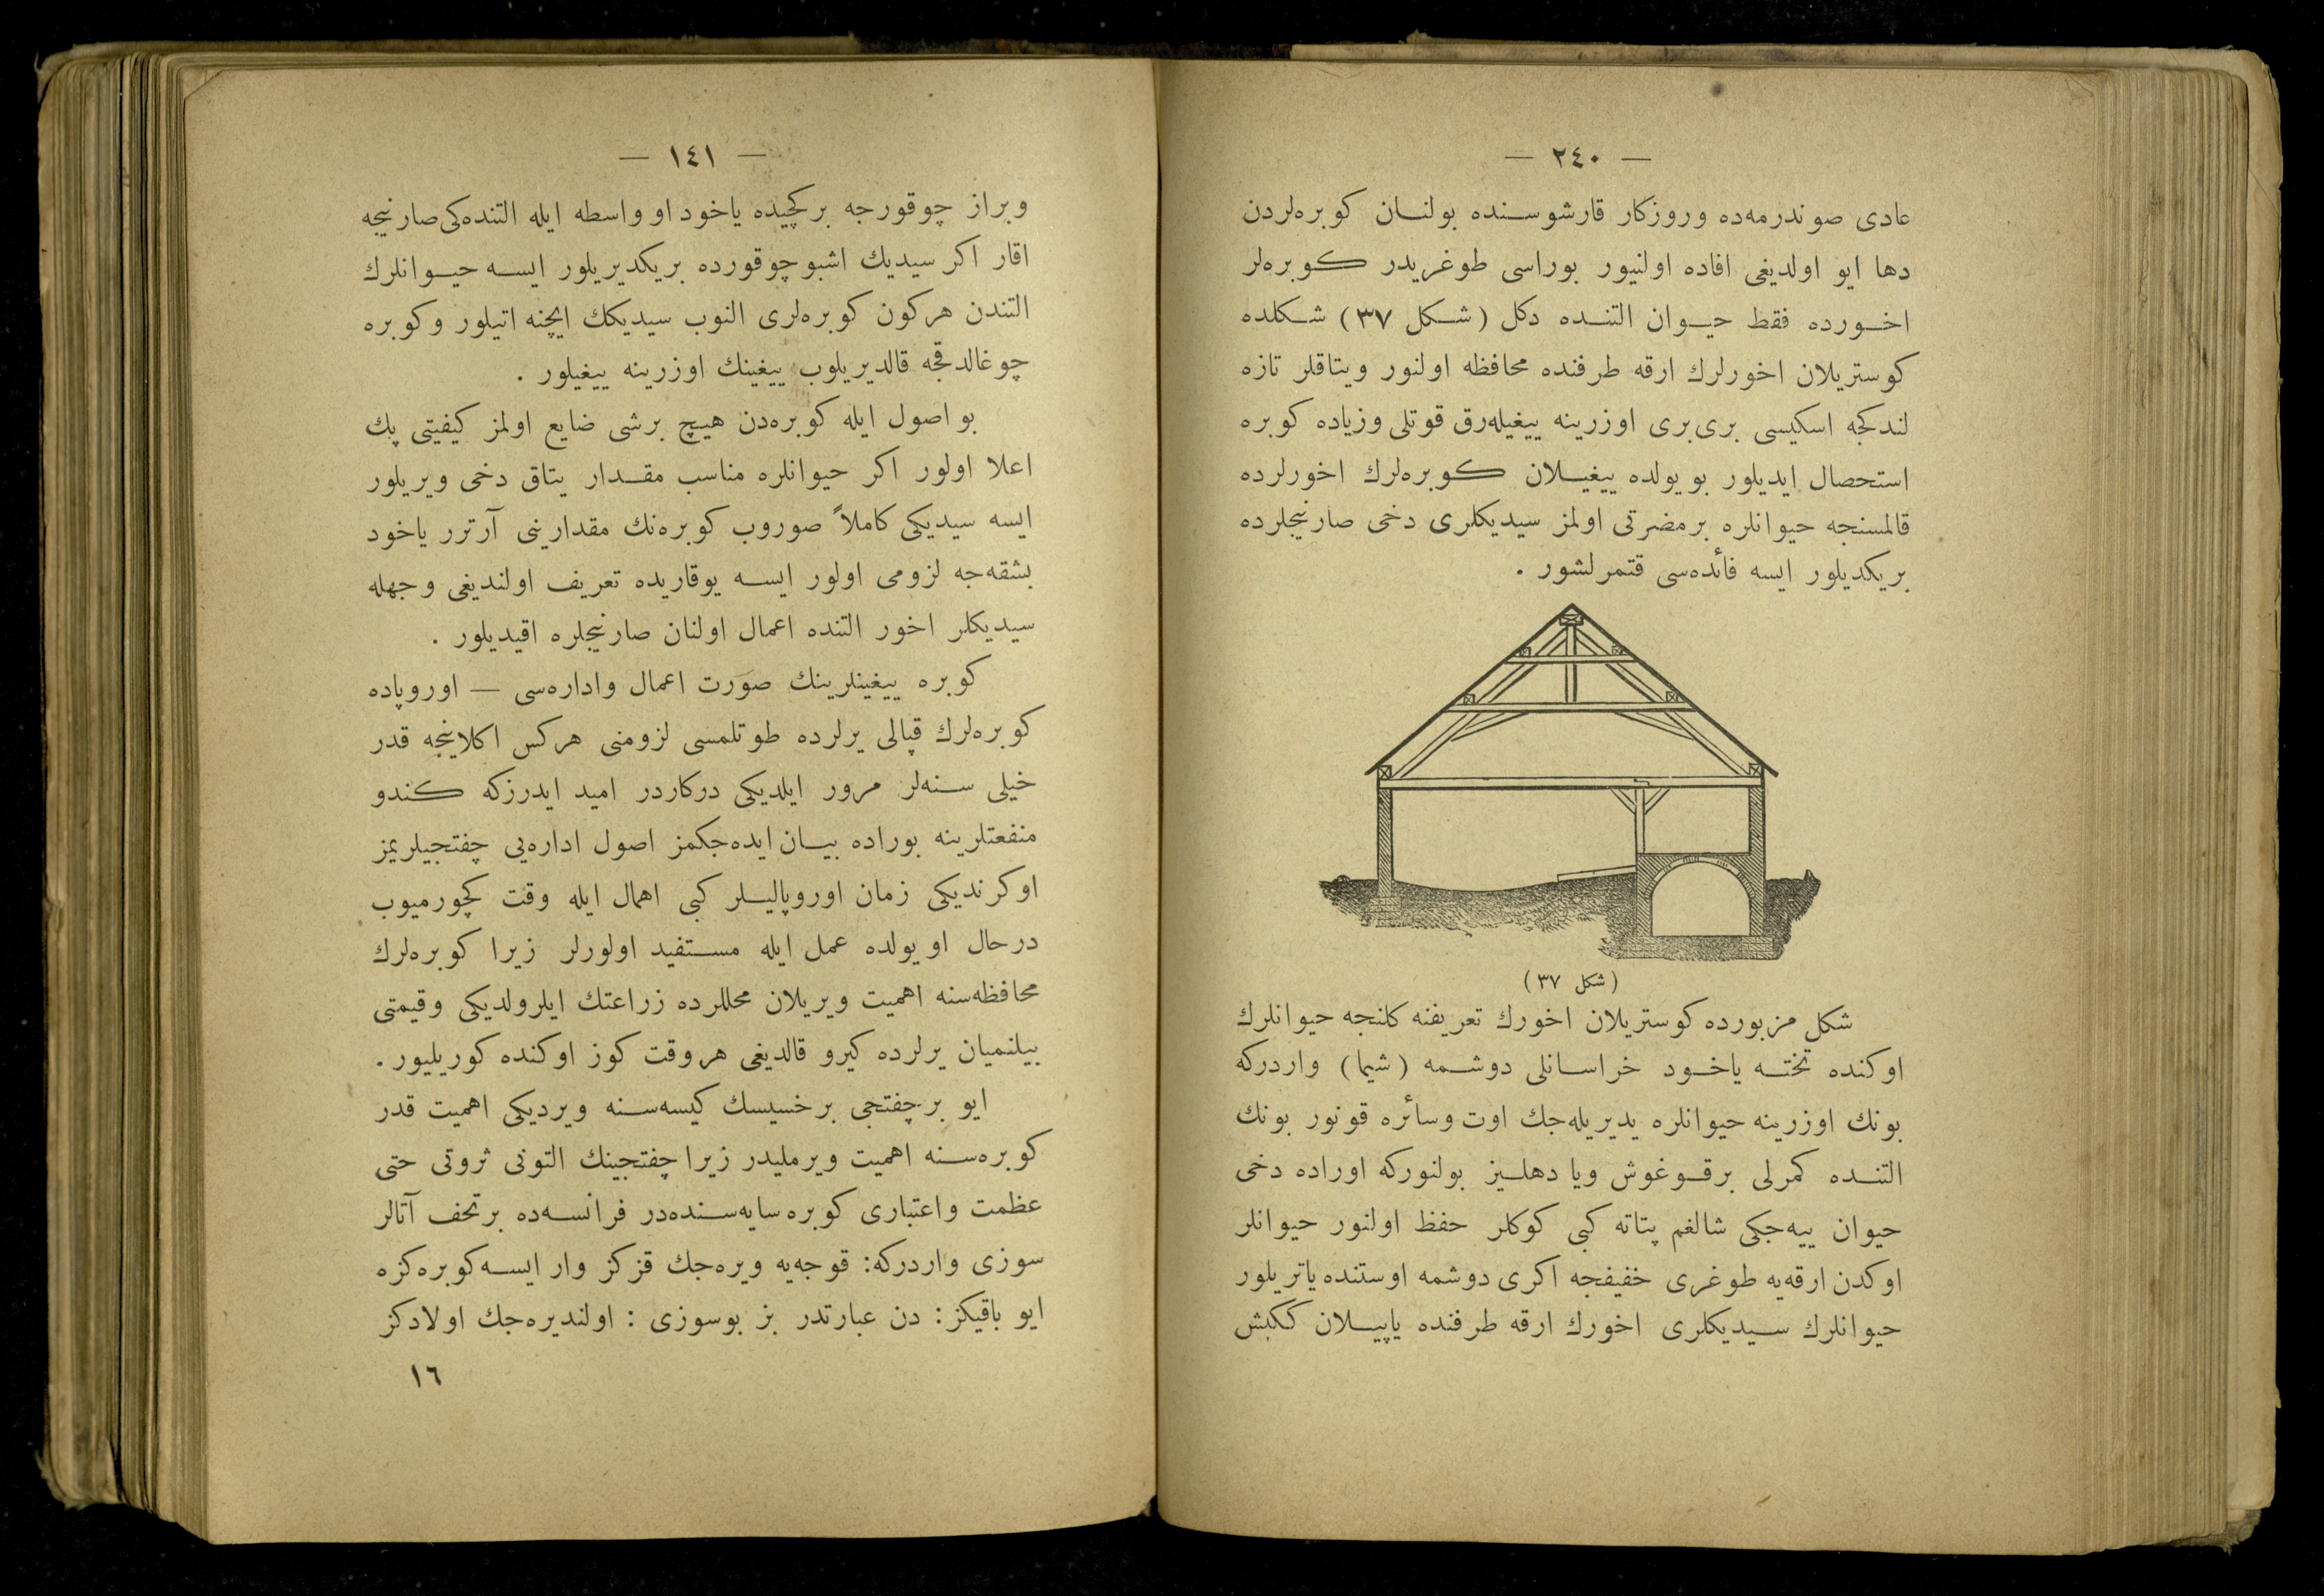 — ٢٤٠ —
عادی صوندرمه‌ده وروزكار قارشوسنده بولنان كوبره‌لردن
دها ایو اولدیغی افاده اولنیور بوراسی طوغریدر كوبره‌لر
اخورده فقط حیوان التنده دكل (شكل ٣٧) شكلده
كوستریلان اخورلرك ارقه طرفنده محافظه اولنور ویتاقلر تازه
لندكجه اسكیسی بری‌بری اوزرینه ییغیله‌رق قوتلی وزیاده كوبره
استحصال ایدیلور بو یولده ییغیلان كوبره‌لرك اخورلرده
قالمسنجه حیوانلره بر مضرتی اولمز سیدیكلری دخی صارنیجلرده
بریكدیلور ایسه فائده‌سی قتمرلشور .
(شكل ٣٧)
شكل مزبورده كوستریلان اخورك تعریفنه كلنجه حیوانلرك
اوكنده تخته یاخود خراسانلی دوشمه (شیما) واردركه
بونك اوزرینه حیوانلره یدیریله‌جك اوت وسائره قونور بونك
التنده كمرلی برقوغوش ویا دهلیز بولنوركه اوراده دخی
حیوان ییه‌جكی شالغم پتاته كبی كوكلر حفظ اولنور حیوانلر
اوكدن ارقه‌یه طوغری خفیفجه اكری دوشمه اوستنده یاتریلور
حیوانلرك سیدیكلری اخورك ارقه طرفنده یاپیلان ككبش
— ١٤١ —
وبراز چوقورجه بركچیده یاخود او واسطه ایله التنده‌كی صارنیجه
اقار اكر سیدیك اشبو چوقورده بریكدیریلور ایسه حیوانلرك
التندن هركون كوبره‌لری النوب سیدیكك ایچنه اتیلور وكوبره
چوغالدقجه قالدیریلوب ییغینك اوزرینه ییغیلور .
بو اصول ایله كوبره‌دن هیچ برشی ضایع اولمز كیفیتی پك
اعلا اولور اكر حیوانلره مناسب مقدار یتاق دخی ویریلور
ایسه سیدیكی كاملاً صوروب كوبره‌نك مقدارینی آرترر یاخود
بشقه‌جه لزومی اولور ایسه یوقاریده تعریف اولندیغی وجهله
سیدیكلر اخور التنده اعمال اولنان صارنیجلره اقیدیلور .
كوبره ییغینلرینك صورت اعمال واداره‌سی — اوروپاده
كوبره‌لرك قپالی یرلرده طوتلمسی لزومنی هركس اكلاینجه قدر
خیلی سنه‌لر مرور ایلدیكی دركاردر امید ایدرزكه كندو
منفعتلرینه بوراده بیان ایده‌جكمز اصول اداره‌یی چفتجیلریمز
اوكرندیكی زمان اوروپالیلر كبی اهمال ایله وقت كچورمیوب
درحال او یولده عمل ایله مستفید اولورلر زیرا كوبره‌لرك
محافظه‌سنه اهمیت ویریلان محللرده زراعتك ایلرولدیكی وقیمتی
بیلنمیان یرلرده كیرو قالدیغی هروقت كوز اوكنده كوریلیور .
ایو برچفتجی برخسیسك كیسه‌سنه ویردیكی اهمیت قدر
كوبره‌سنه اهمیت ویرملیدر زیرا چفتجینك التونی ثروتی حتی
عظمت واعتباری كوبره سایه‌سنده‌در فرانسه‌ده برتحف آتالر
سوزی واردركه: قوجه‌یه ویره‌جك قزكز وار ایسه كوبره‌كزه
ایو باقیكز: دن عبارتدر بز بوسوزی : اولندیره‌جك اولادكز
١٦